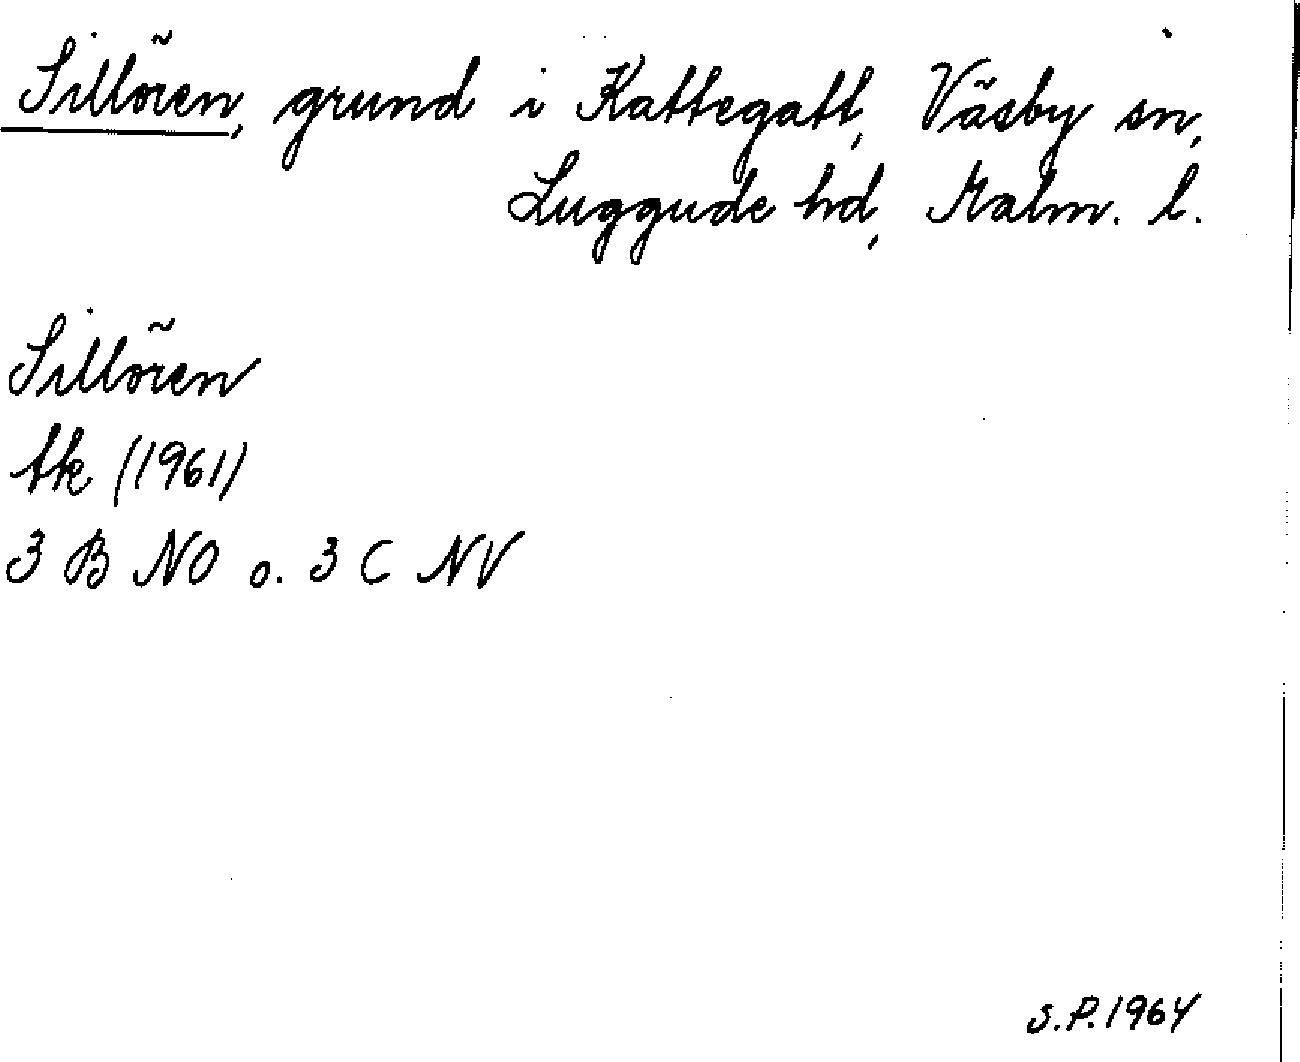 Sillören, grund i Kattegatt, Väsby sn,
Luggude hd, Malm. l.
Sillören
tk (1961)
3 B NO o. 3 C NV
S.P. 1964